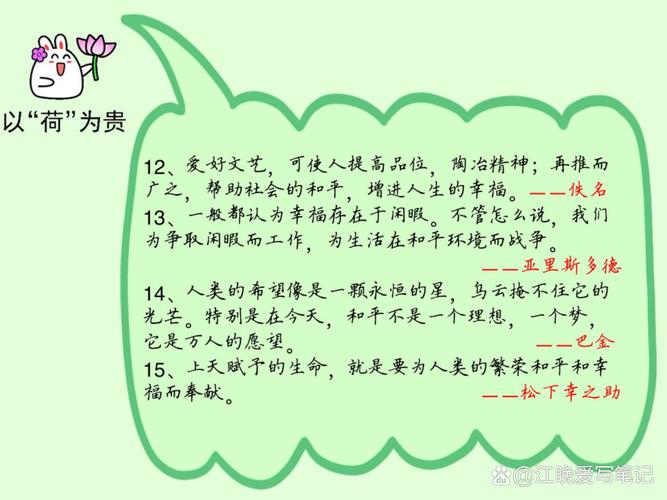 以“荷”为贵
12、爱好文艺，可使人提高品位，陶冶精神；再推而
广之，帮助社会的和平，增进人生的幸福。——佚名
13、一般都认为幸福存在于闲暇。不管怎么说，我们
为争取闲暇而工作，为生活在和平环境而战争。
——亚里斯多德
14、人类的希望像是一颗永恒的星，乌云掩不住它的
光芒。特别是在今天，和平不是一个理想，一个梦，
它是万人的愿望。——巴金
15、上天赋予的生命，就是要为人类的繁荣和平和幸
福而奉献。——松下幸之助
@江晚爱写笔记